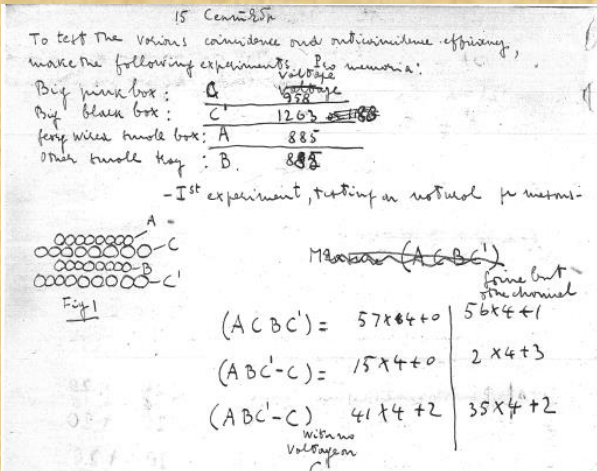 15
To test the various coincidence and anticoincidence efficiency,
make the following experiments. Pro memoria:
Voltage
Big pink box: C 958
Big black box: C' 1263
ferry wired small box: A 885
Other small tray: B.
- Ist experiment, testing on natural mesons -
A
C
B
C'
Fig 1
(ACBC')
other channel
(ACBC') = 57x4+0 56x4+1
(ABC'-C) = 15x4+0 2x4+3
(ABC'-C) 41x4+2 35x4+2
with no
Voltage on
C